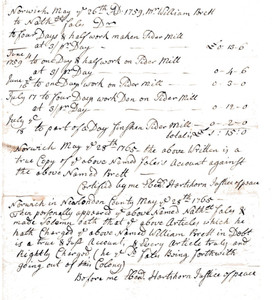 Norwich May ye 26th AD 1759 Mr William Brett
to Nathll fales Dr
to four Days & half work maken Sider Mill
at 3/ pr Day £0=13=6
June 4
1759 to one Day & half work on Sider Mill
at 3/ pr Day 0-4-6
June to one Day work on Sider Mill 0-3-0
July 17 to four Days work Don on Sider Mill
at 3/ pr Day 0-12-0
July ye
18 to part of a Day finshen Sider Mill 0-2-0
total is £1:15=0
Norwich May ye 28th 1765 the above Written is a
true Copy of ye above Named fales's Account against
the above Named Brett
Certified by me Hartshorn Justice of peace
Norwich in Newlondon County May ye 28th 1765
Then personally appeared ye above Named Nathll fales &
made Solemn oath that ye above Articles which he
hath Charged ye above Named William Brett in Debt
is a true & Just Account, & Every Article truly and
Rightly Charged (he ye sd fales being forthwith
going out of this Colony)
Before me Hartshorn Justice of peace